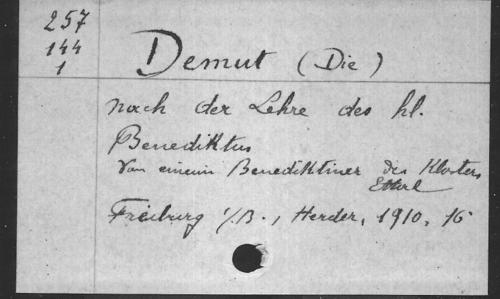 257
144
1
Demut (Die)
nach der Lehre des hl.
Benediktus
Von einem Benediktiner des Klosters
Ettal
Freiburg i/B., Herder, 1910, 16°